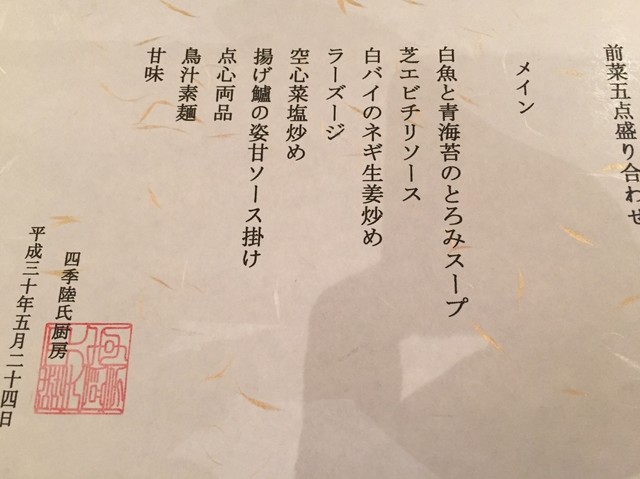 前菜五点盛り合わせ
メイン
白魚と青海苔のとろみスープ
芝エビチリソース
白バイのネギ生姜炒め
ラーズージ
空心菜塩炒め
揚げ鱸の姿甘ソース掛け
点心両品
鳥汁素麺
甘味
四季陸氏厨房
平成三十年五月二十四日